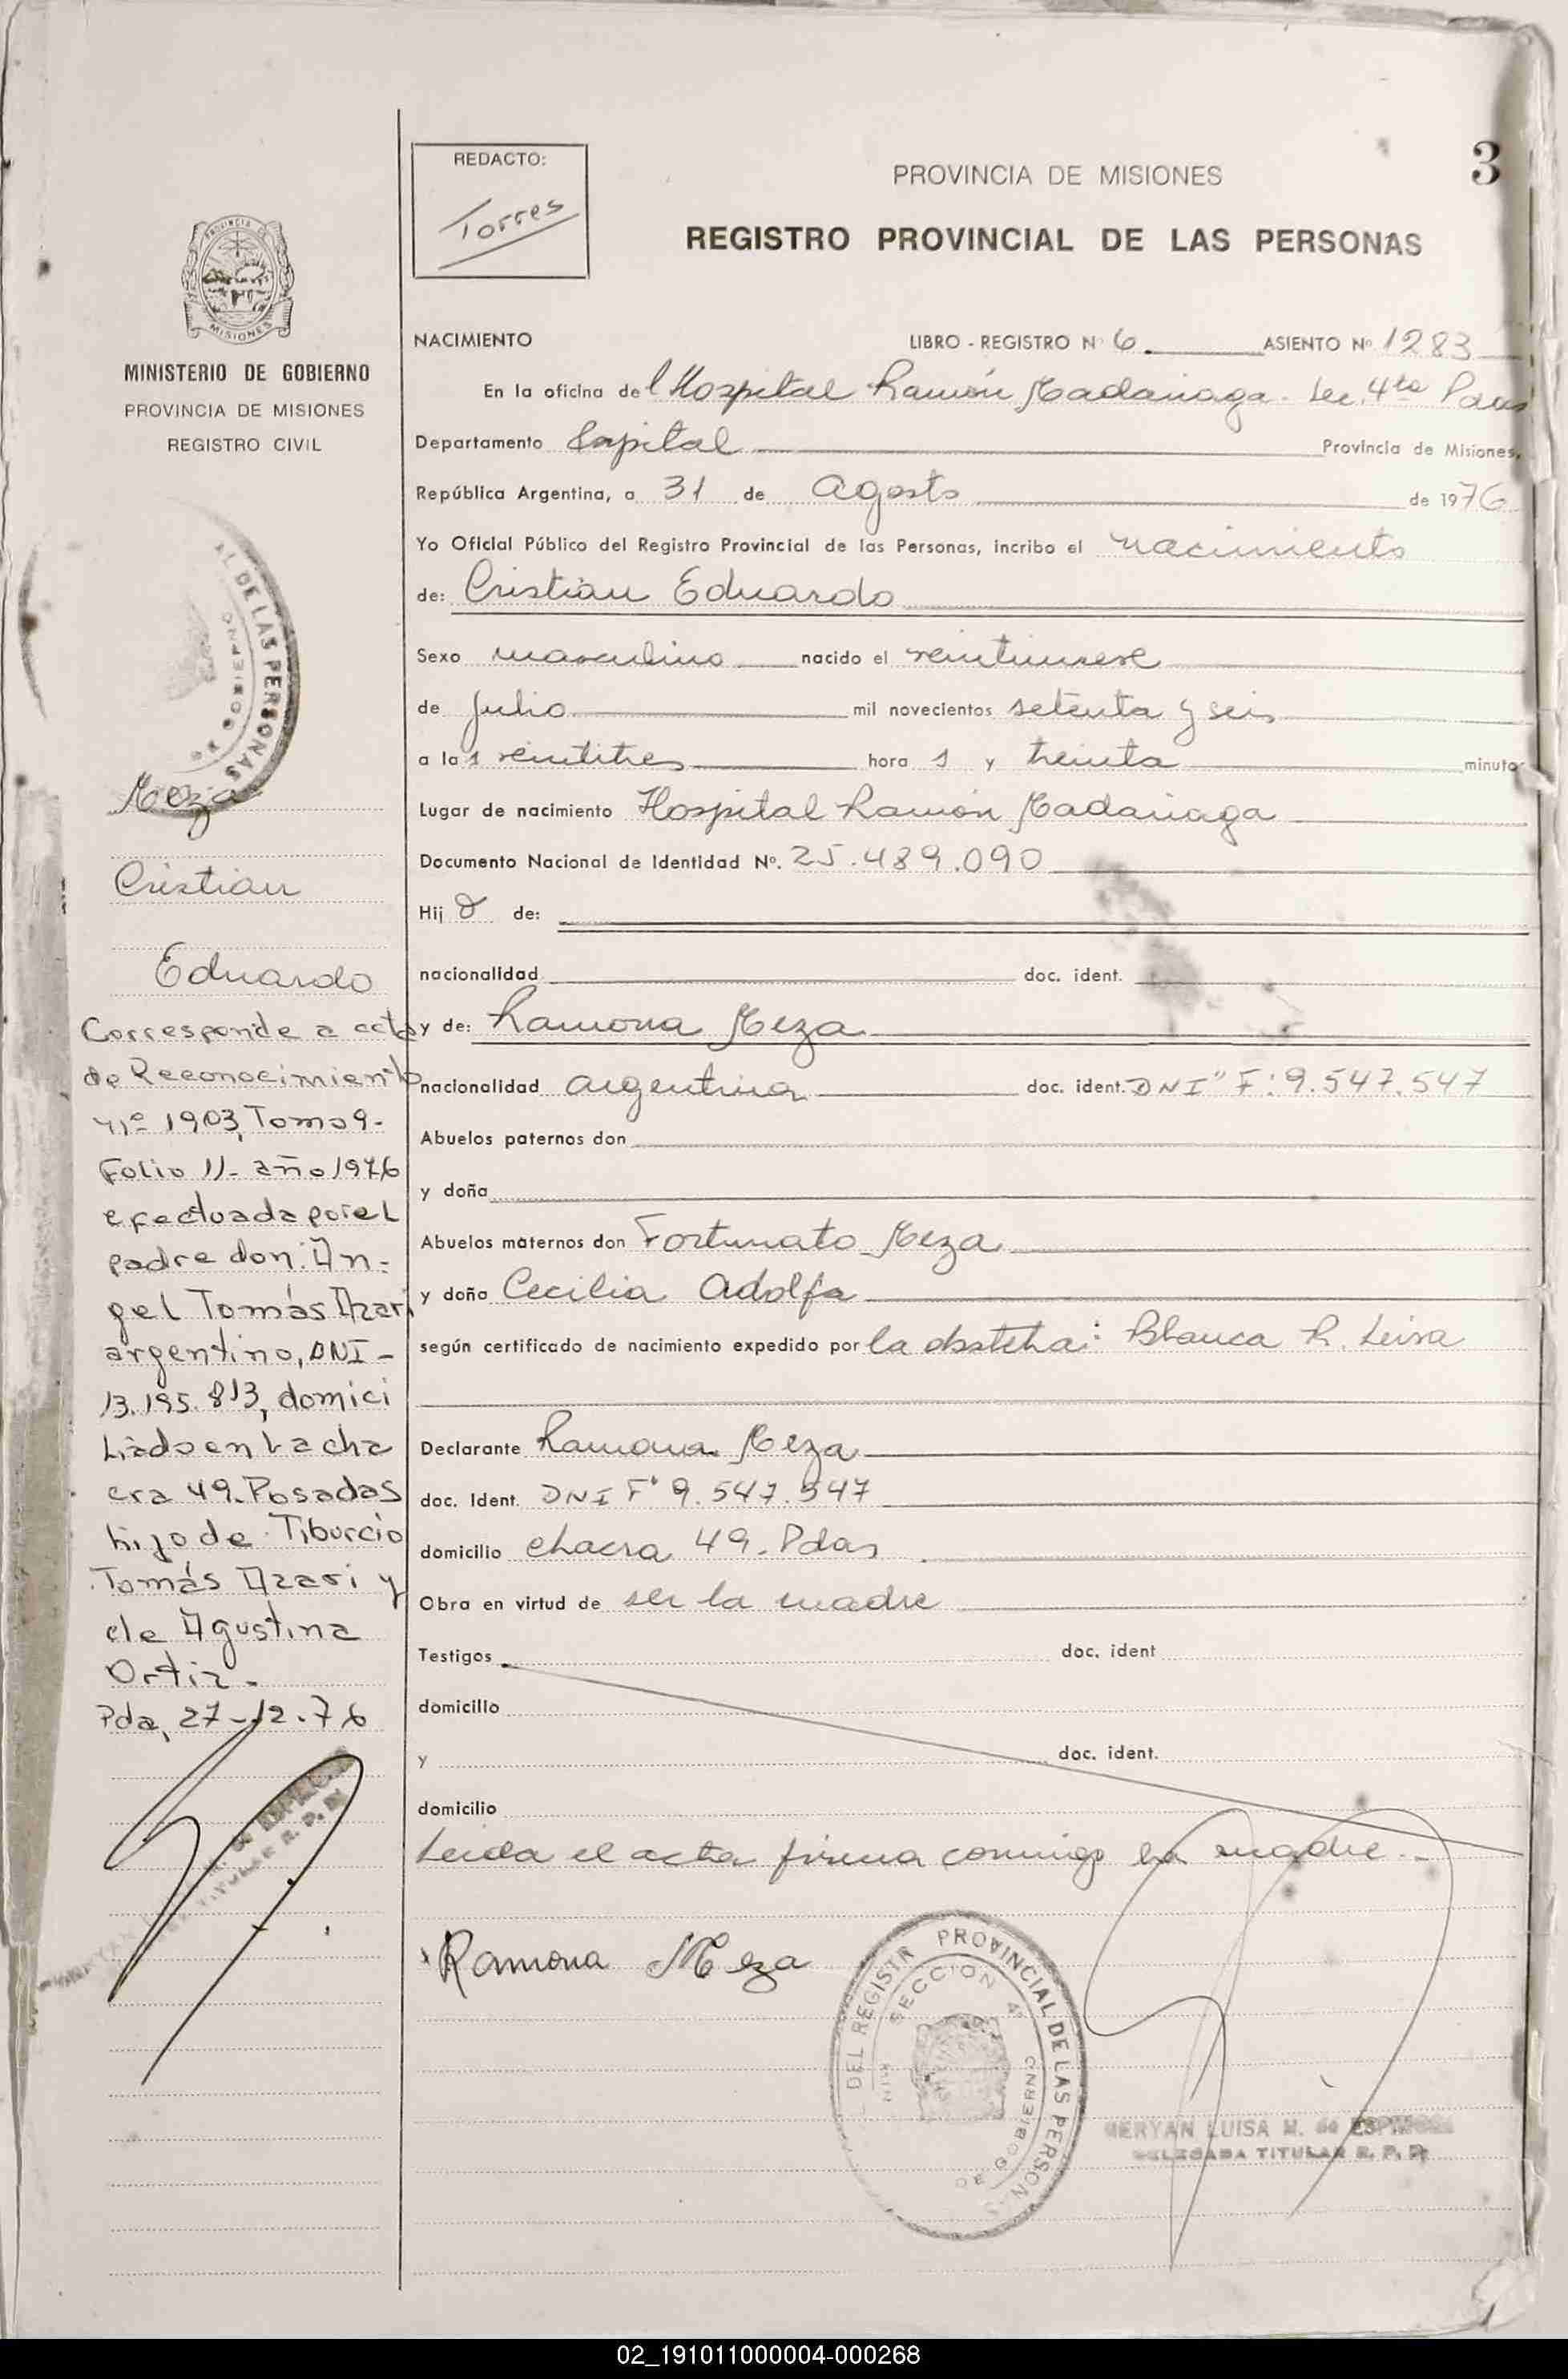 3
REDACTO:
Torres
PROVINCIA DE MISIONES
REGISTRO PROVINCIAL DE LAS PERSONAS
MISIONES
MINISTERIO DE GOBIERNO
PROVINCIA DE MISIONES
REGISTRO CIVIL
NACIMIENTO LIBRO - REGISTRO N° 6. ASIENTO N° 1283
En la oficina del Hospital Ramón Madariaga. Sec. 4ta Pdas
Departamento Capital Provincia de Misiones,
República Argentina, a 31 de Agosto de 1976
Yo Oficial Público del Registro Provincial de las Personas, incribo el nacimiento
de: Cristian Eduardo
Sexo masculino nacido el veintinueve
de Julio mil novecientos setenta y seis
a las veintitres horas y treinta minuto
Lugar de nacimiento Hospital Ramón Madariaga
Documento Nacional de Identidad N°. 25.489.090
Hijo de:
nacionalidad doc. ident.
y de: Ramona Meza
nacionalidad argentina doc. ident. DNI "F: 9.547.547
Abuelos paternos don
y doña
Abuelos maternos don Fortunato Meza
y doña Cecilia Adolfa
según certificado de nacimiento expedido por la obstetra: Blanca R. Leiva
Declarante Ramona Meza
doc. Ident. DNI F" 9.547.547
domicilio chacra 49. Pdas
Obra en virtud de ser la madre
Testigos doc. ident
domicilio
y doc. ident.
domicilio
Leida el acta firma conmigo la madre.-
Ramona Meza
DEL REGISTR PROVINCIAL DE LAS PERSON
SECCION 4°
MIN DE GOBIERNO
MERYAN LUISA M. de ESPINOSA
DELEGADA TITULAR R. P. P.
AL DE LAS PERSONAS
DE GOBIERNO
Meza
Cristian
Eduardo
Corresponde a acta
de Reconocimiento
nº 1903, Tomo 9-
Folio 11- año 1976
efectuada por el
padre don: An-
gel Tomás Azari
argentino, DNI-
13.195.813, domici
liado en la cha
cra 49. Posadas
hijo de Tiburcio
Tomás Azari y
de Agustina
Ortiz.-
Pda, 27-12-76
TITULAR R. P. P.
02_191011000004-000268